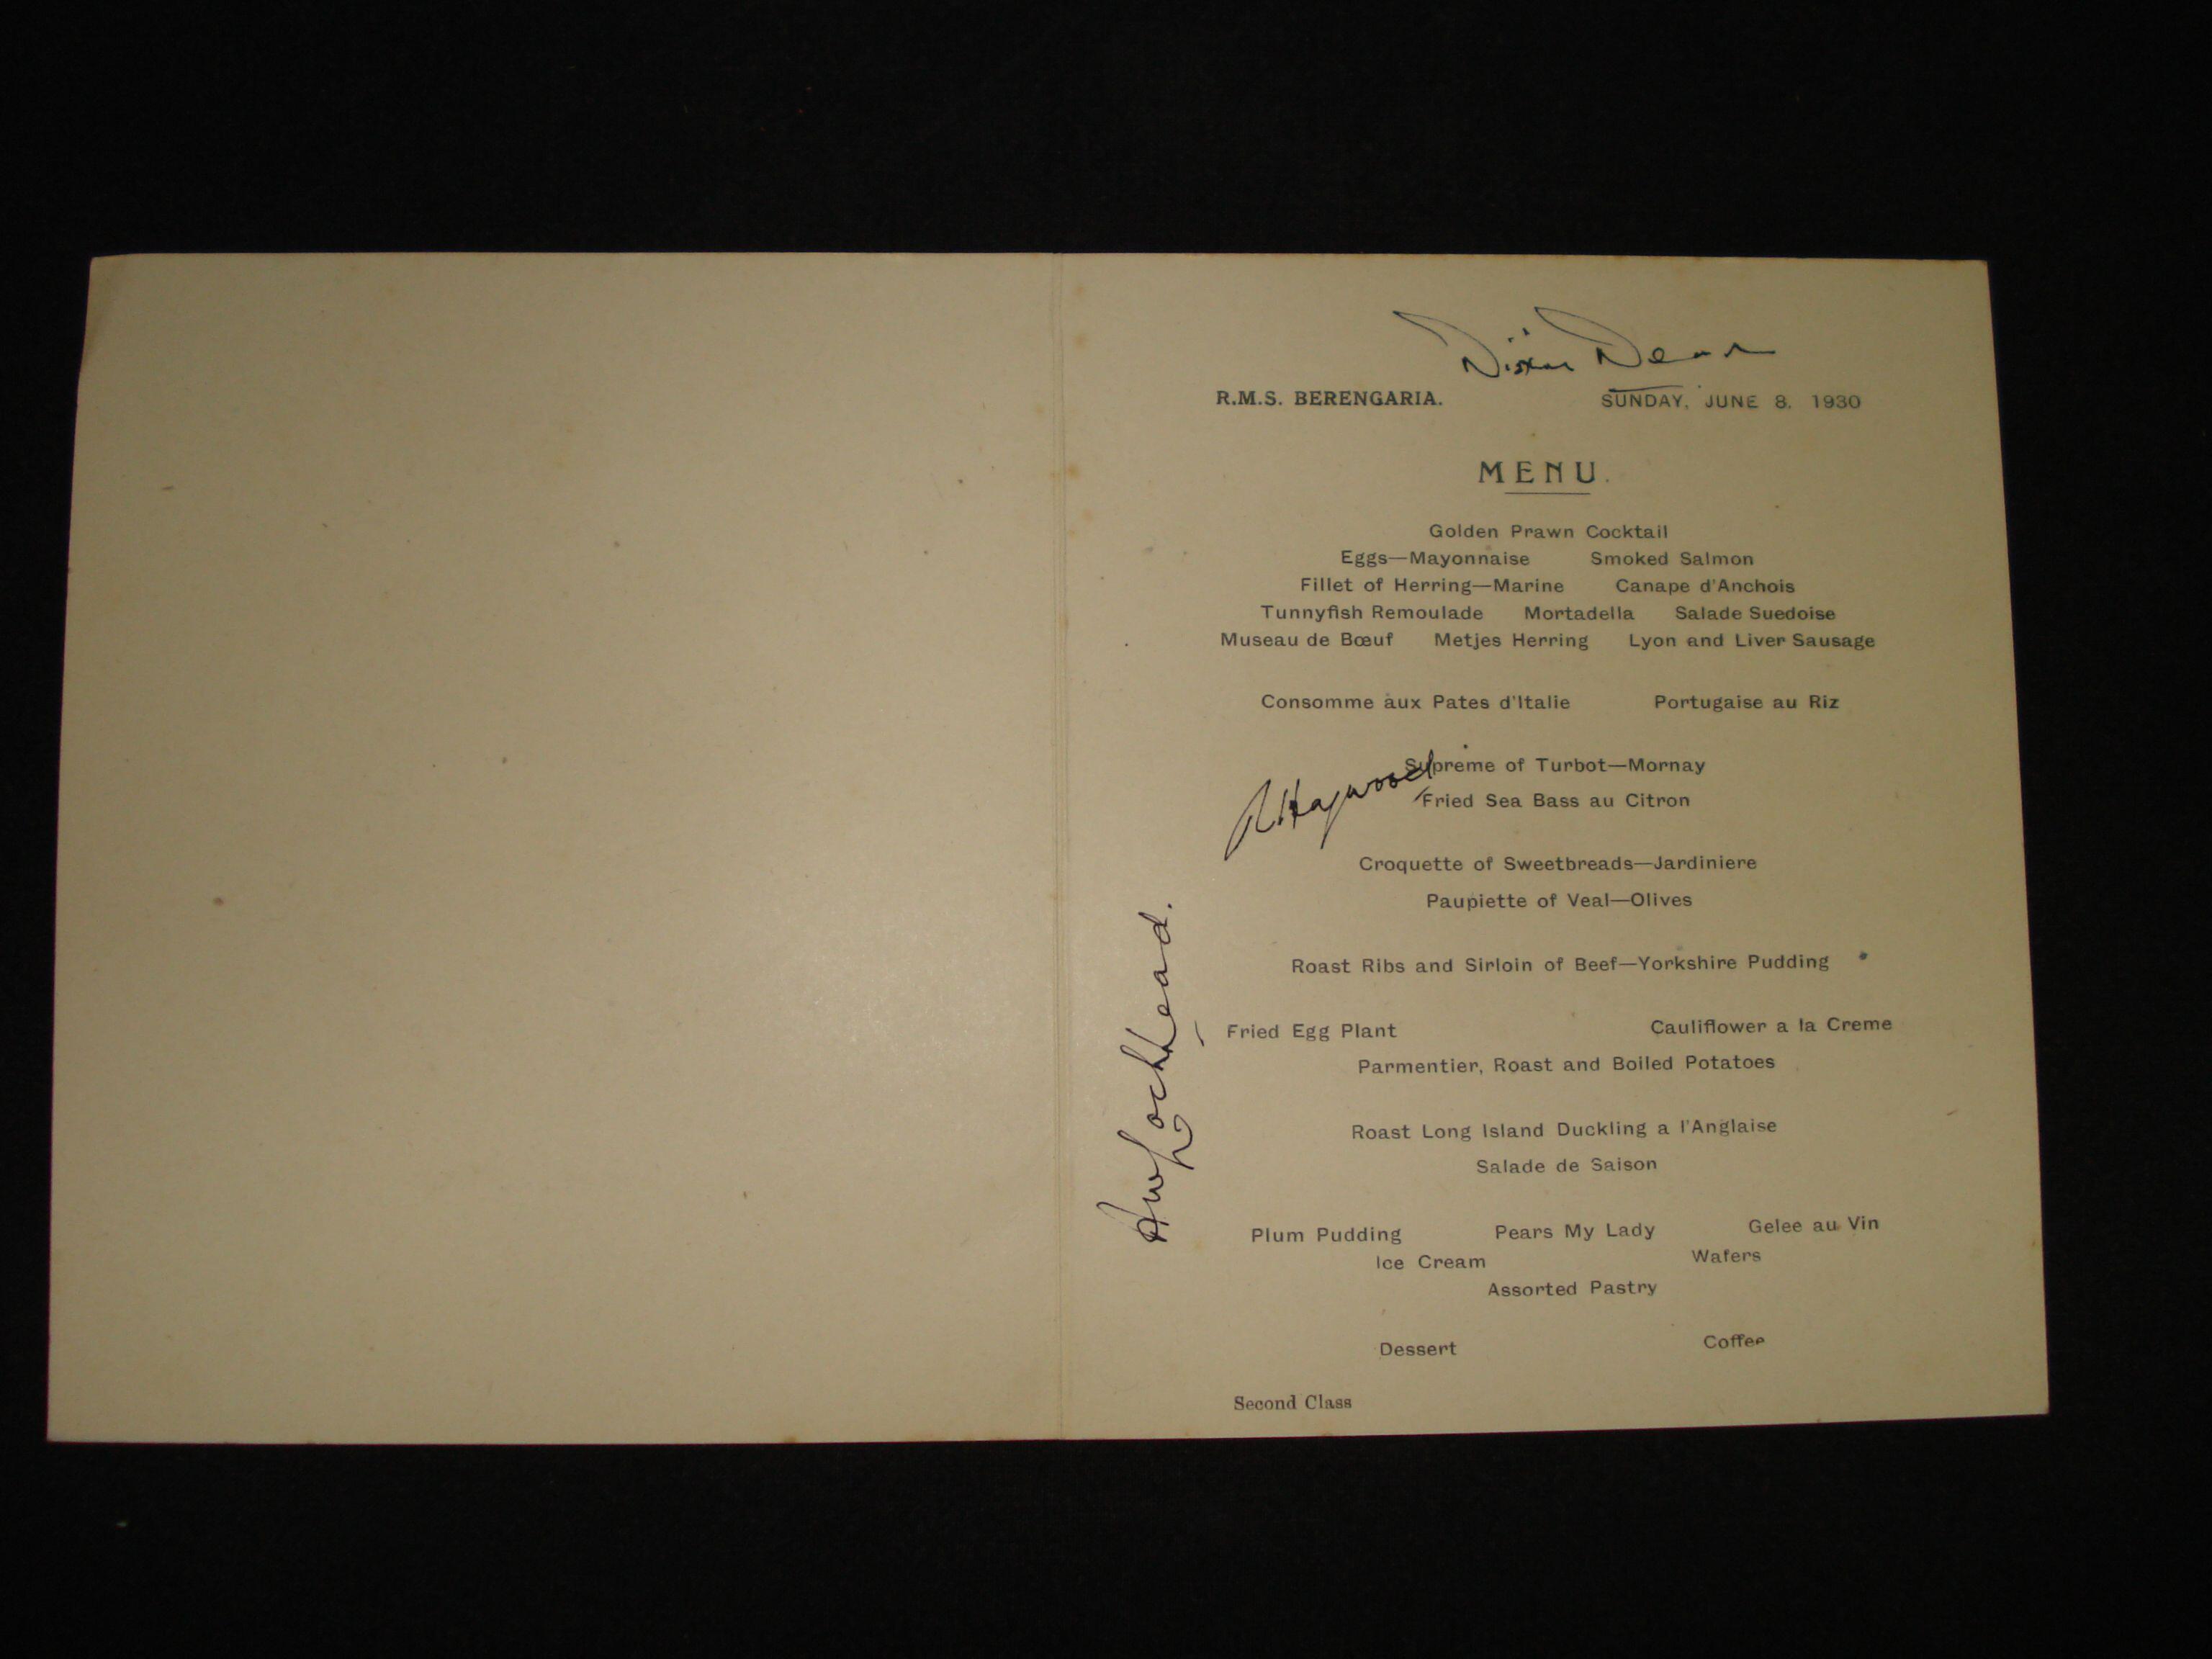 R.M.S. BERENGARIA. SUNDAY, JUNE 8, 1930
MENU.
Golden Prawn Cocktail
Eggs—Mayonnaise Smoked Salmon
Fillet of Herring—Marine Canape d'Anchois
Tunnyfish Remoulade Mortadella Salade Suedoise
Museau de Bœuf Metjes Herring Lyon and Liver Sausage
Consomme aux Pates d'Italie Portugaise au Riz
Supreme of Turbot—Mornay
Haywood
Fried Sea Bass au Citron
Croquette of Sweetbreads—Jardiniere
Paupiette of Veal—Olives
Roast Ribs and Sirloin of Beef—Yorkshire Pudding
Fried Egg Plant Cauliflower a la Creme
Parmentier, Roast and Boiled Potatoes
Lochhead.
Roast Long Island Duckling a l'Anglaise
Salade de Saison
Plum Pudding Pears My Lady Gelee au Vin
Ice Cream Wafers
Assorted Pastry
Dessert Coffee
Second Class